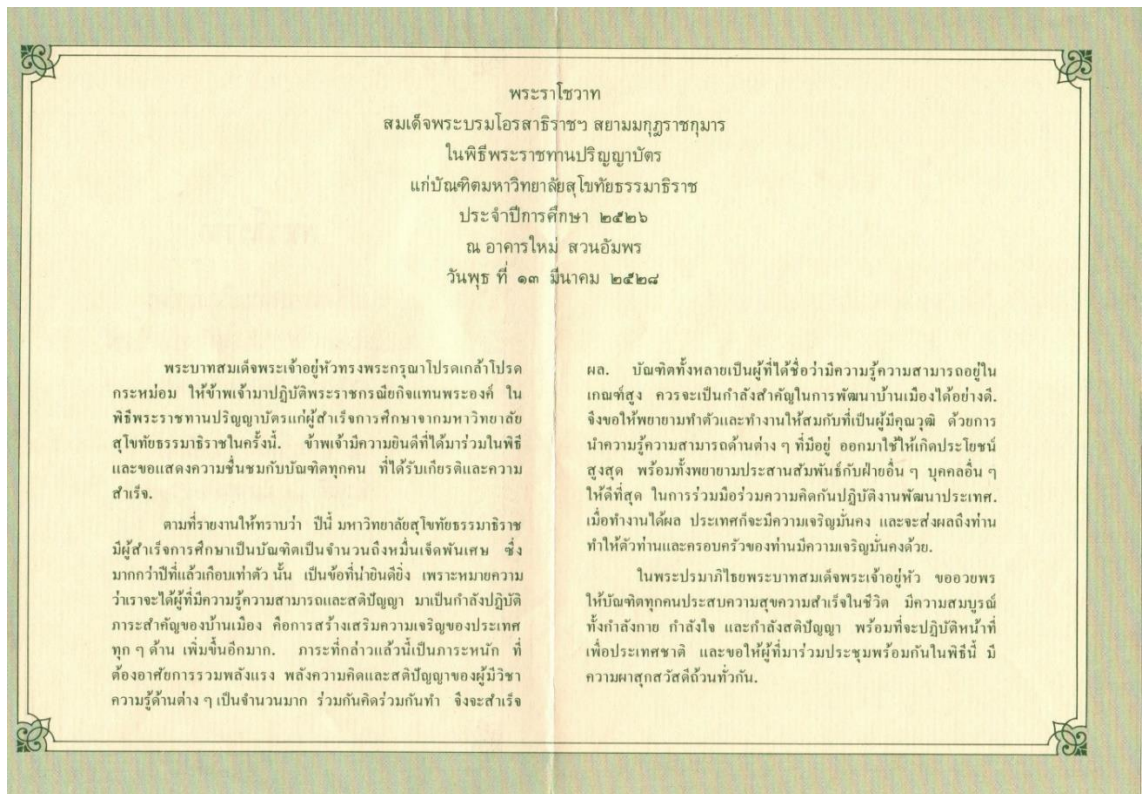 พระราโชวาท
สมเด็จพระบรมโอรสาธิราชฯ สยามมกุฎราชกุมาร
ในพิธีพระราชทานปริญญาบัตร
แก่บัณฑิตมหาวิทยาลัยสุโขทัยธรรมาธิราช
ประจำปีการศึกษา ๒๕๒๖
ณ อาคารใหม่ สวนอัมพร
วันพุธ ที่ ๑๓ มีนาคม ๒๕๒๘
พระบาทสมเด็จพระเจ้าอยู่หัวทรงพระกรุณาโปรดเกล้าโปรด
กระหม่อม ให้ข้าพเจ้ามาปฏิบัติพระราชกรณียกิจแทนพระองค์ ใน
พิธีพระราชทานปริญญาบัตรแก่ผู้สำเร็จการศึกษาจากมหาวิทยาลัย
สุโขทัยธรรมาธิราชในครั้งนี้. ข้าพเจ้ามีความยินดีที่ได้มาร่วมในพิธี
และขอแสดงความชื่นชมกับบัณฑิตทุกคน ที่ได้รับเกียรติและความ
สำเร็จ.
ตามที่รายงานให้ทราบว่า ปีนี้ มหาวิทยาลัยสุโขทัยธรรมาธิราช
มีผู้สำเร็จการศึกษาเป็นบัณฑิตเป็นจำนวนถึงหมื่นเจ็ดพันเศษ ซึ่ง
มากกว่าปีที่แล้วเกือบเท่าตัว นั้น เป็นข้อที่น่ายินดียิ่ง เพราะหมายความ
ว่าเราจะได้ผู้ที่มีความรู้ความสามารถและสติปัญญา มาเป็นกำลังปฏิบัติ
ภาระสำคัญของบ้านเมือง คือการสร้างเสริมความเจริญของประเทศ
ทุก ๆ ด้าน เพิ่มขึ้นอีกมาก. ภาระที่กล่าวแล้วนี้เป็นภาระหนัก ที่
ต้องอาศัยการรวมพลังแรง พลังความคิดและสติปัญญาของผู้มีวิชา
ความรู้ด้านต่าง ๆ เป็นจำนวนมาก ร่วมกันคิดร่วมกันทำ จึงจะสำเร็จ
ผล. บัณฑิตทั้งหลายเป็นผู้ที่ได้ชื่อว่ามีความรู้ความสามารถอยู่ใน
เกณฑ์สูง ควรจะเป็นกำลังสำคัญในการพัฒนาบ้านเมืองได้อย่างดี.
จึงขอให้พยายามทำตัวและทำงานให้สมกับที่เป็นผู้มีคุณวุฒิ ด้วยการ
นำความรู้ความสามารถด้านต่าง ๆ ที่มีอยู่ ออกมาใช้ให้เกิดประโยชน์
สูงสุด พร้อมทั้งพยายามประสานสัมพันธ์กับฝ่ายอื่น ๆ บุคคลอื่น ๆ
ให้ดีที่สุด ในการร่วมมือร่วมความคิดกันปฏิบัติงานพัฒนาประเทศ.
เมื่อทำงานได้ผล ประเทศก็จะมีความเจริญมั่นคง และจะส่งผลถึงท่าน
ทำให้ตัวท่านและครอบครัวของท่านมีความเจริญมั่นคงด้วย.
ในพระปรมาภิไธยพระบาทสมเด็จพระเจ้าอยู่หัว ขออวยพร
ให้บัณฑิตทุกคนประสบความสุขความสำเร็จในชีวิต มีความสมบูรณ์
ทั้งกำลังกาย กำลังใจ และกำลังสติปัญญา พร้อมที่จะปฏิบัติหน้าที่
เพื่อประเทศชาติ และขอให้ผู้ที่มาร่วมประชุมพร้อมกันในพิธีนี้ มี
ความผาสุกสวัสดีถ้วนทั่วกัน.